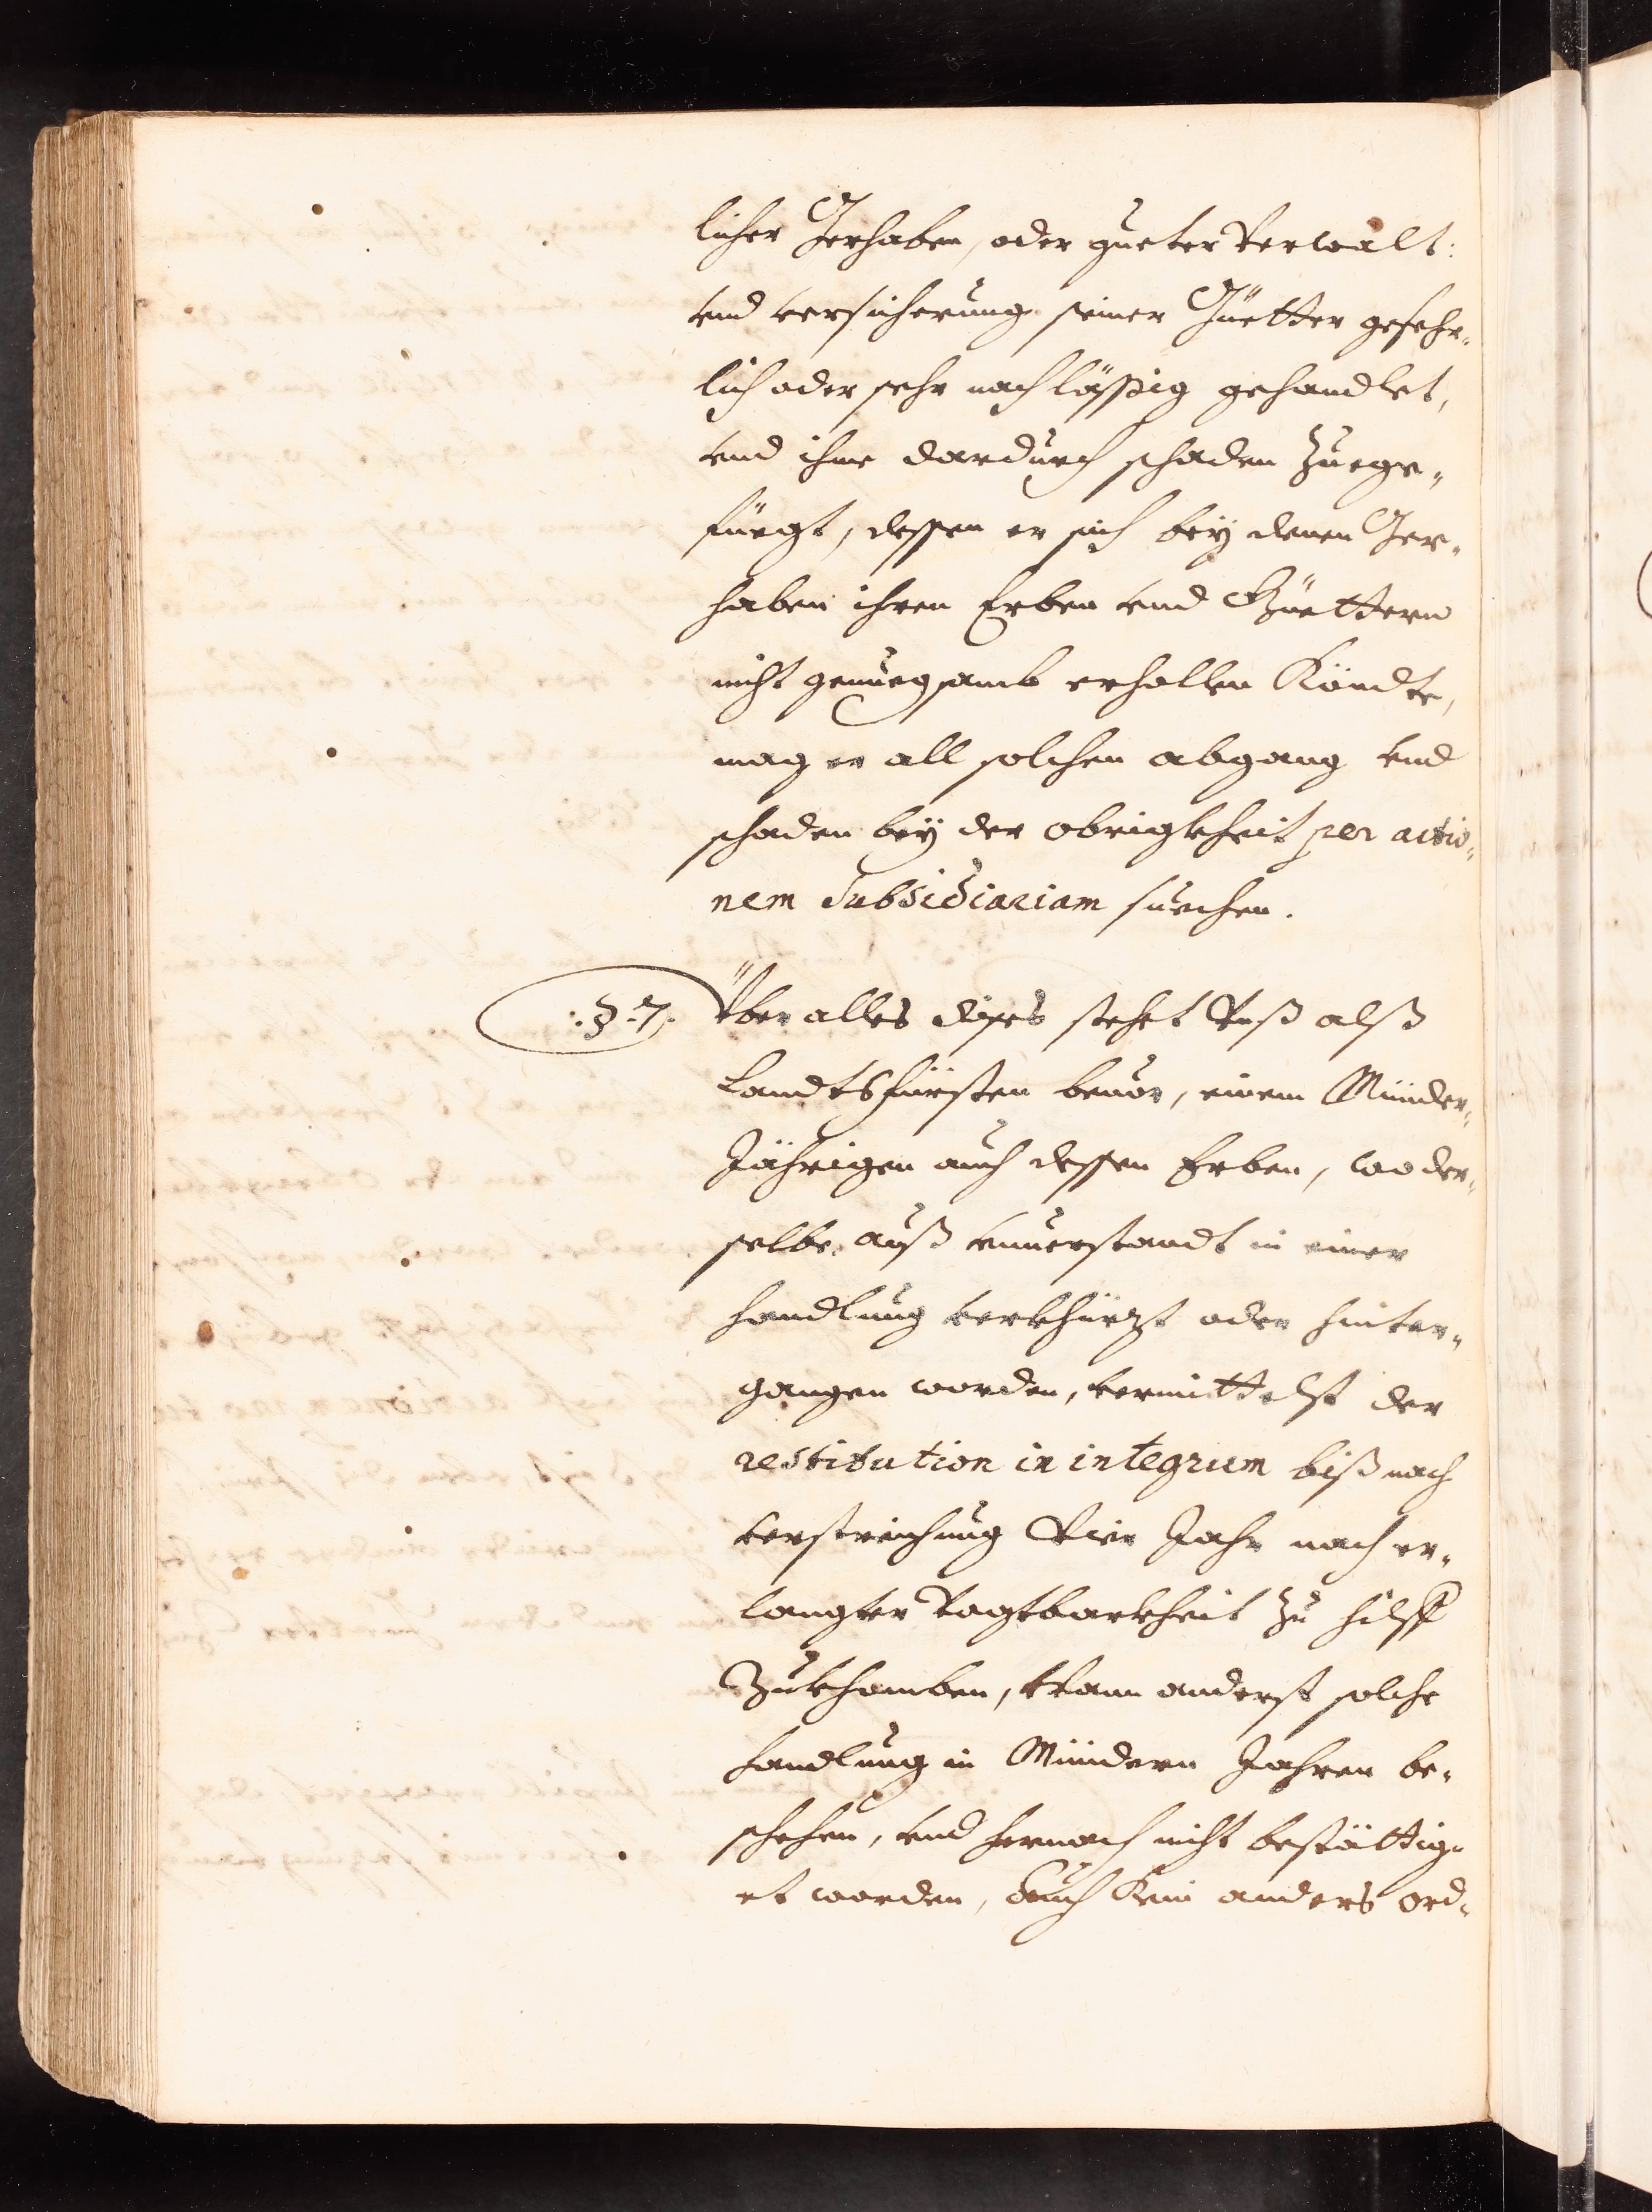 licher Gerhaben, oder gueter Verwalt:
vnd versicherung seiner Güetter gefehr„
lich oder sehr nachlässig gehandlet,
vnd ihme dardurch schaden Zuege„
füegt, dessen er sich beÿ denen Ger„
haben ihren Erben vnd Güettern
nicht genuegsamb erhollen Köndte,
mag er all solchen abgang vnd
schaden beÿ der obrigkheit per actio„
nem Subsidiariam suechen.
:§. 7. Über alles dises stehet Vnß alß
Landtsfürsten beuor, einem Münder„
Jährigen auch dessen Erben, wo der„
selbe auß vnuerstandt in einer
handlung verkhürzt oder hinter„
gangen worden, vermittelst der
restitution in integrum biß nach
verstreichung Vier Jahr nach er„
langter Vogtbarkheit zu hilff
Zukhomben, Wann anderst solche
handlung in Mündern Jahren be„
schehen, vnd hernach nicht bestättig„
et worden, Auch Kein anders ord„